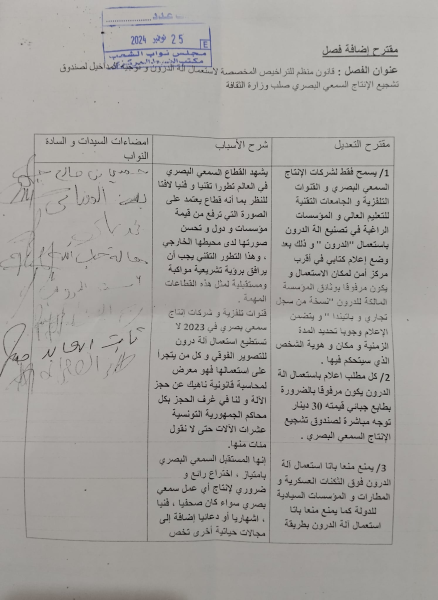 25 نوفمبر 2024
E
مجلس نواب الشعب
مقترح إضافة فصل
عنوان الفصل : قانون منظم للتراخيص المخصصة لاستعمال آلة الدرون و توجيه المداخيل لصندوق
تشجيع الإنتاج السمعي البصري صلب وزارة الثقافة
مقترح التعديل
1/ يسمح فقط لشركات الإنتاج
السمعي البصري و القنوات
التلفزية و الجامعات التقنية
للتعليم العالي و المؤسسات
الراغبة في تصنيع آلة الدرون
باستعمال "الدرون" و ذلك بعد
وضع إعلام كتابي في أقرب
مركز أمن لمكان الاستعمال و
يكون مرفوقا بوثائق المؤسسة
المالكة للدرون "نسخة من سجل
تجاري و باتيندا" و يتضمن
الإعلام وجوبا تحديد المدة
الزمنية و مكان و هوية الشخص
الذي سيتحكم فيها .
2/ كل مطلب اعلام باستعمال الة
الدرون يكون مرفوقا بالضرورة
بطابع جبائي قيمته 30 دينار
توجه مباشرة لصندوق تشجيع
الإنتاج السمعي البصري .
3/ يمنع منعا باتا استعمال آلة
الدرون فوق الثكنات العسكرية و
المطارات و المؤسسات السيادية
للدولة كما يمنع منعا باتا
استعمال آلة الدرون بطريقة
شرح الأسباب
يشهد القطاع السمعي البصري
في العالم تطورا تقنيا و فنيا لافتا
للنظر بما أنه قطاع يعتمد على
الصورة التي ترفع من قيمة
مؤسسات و دول و تحسن
صورتها لدى محيطها الخارجي
، وهذا التطور التقني يجب أن
يرافق برؤية تشريعية مواكبة
ومستقبلية لمثل هذه القطاعات
المهمة .
قنوات تلفزية و شركات إنتاج
سمعي بصري في 2023 لا
تستطيع استعمال آلة درون
للتصوير الفوقي و كل من يتجرأ
على استعمالها فهو معرض
لمحاسبة قانونية ناهيك عن حجز
الآلة و لنا في غرف الحجز بكل
محاكم الجمهورية التونسية
عشرات الآلات حتى لا نقول
مئات منها.
إنها المستقبل السمعي البصري
بامتياز ، اختراع رائع و
ضروري لإنتاج أي عمل سمعي
بصري سواء كان صحفيا ، فنيا
، اشهاريا أو دعائيا إضافة إلى
مجالات حياتية أخرى تخص
امضاءات السيدات و السادة
النواب
ثابت العابد